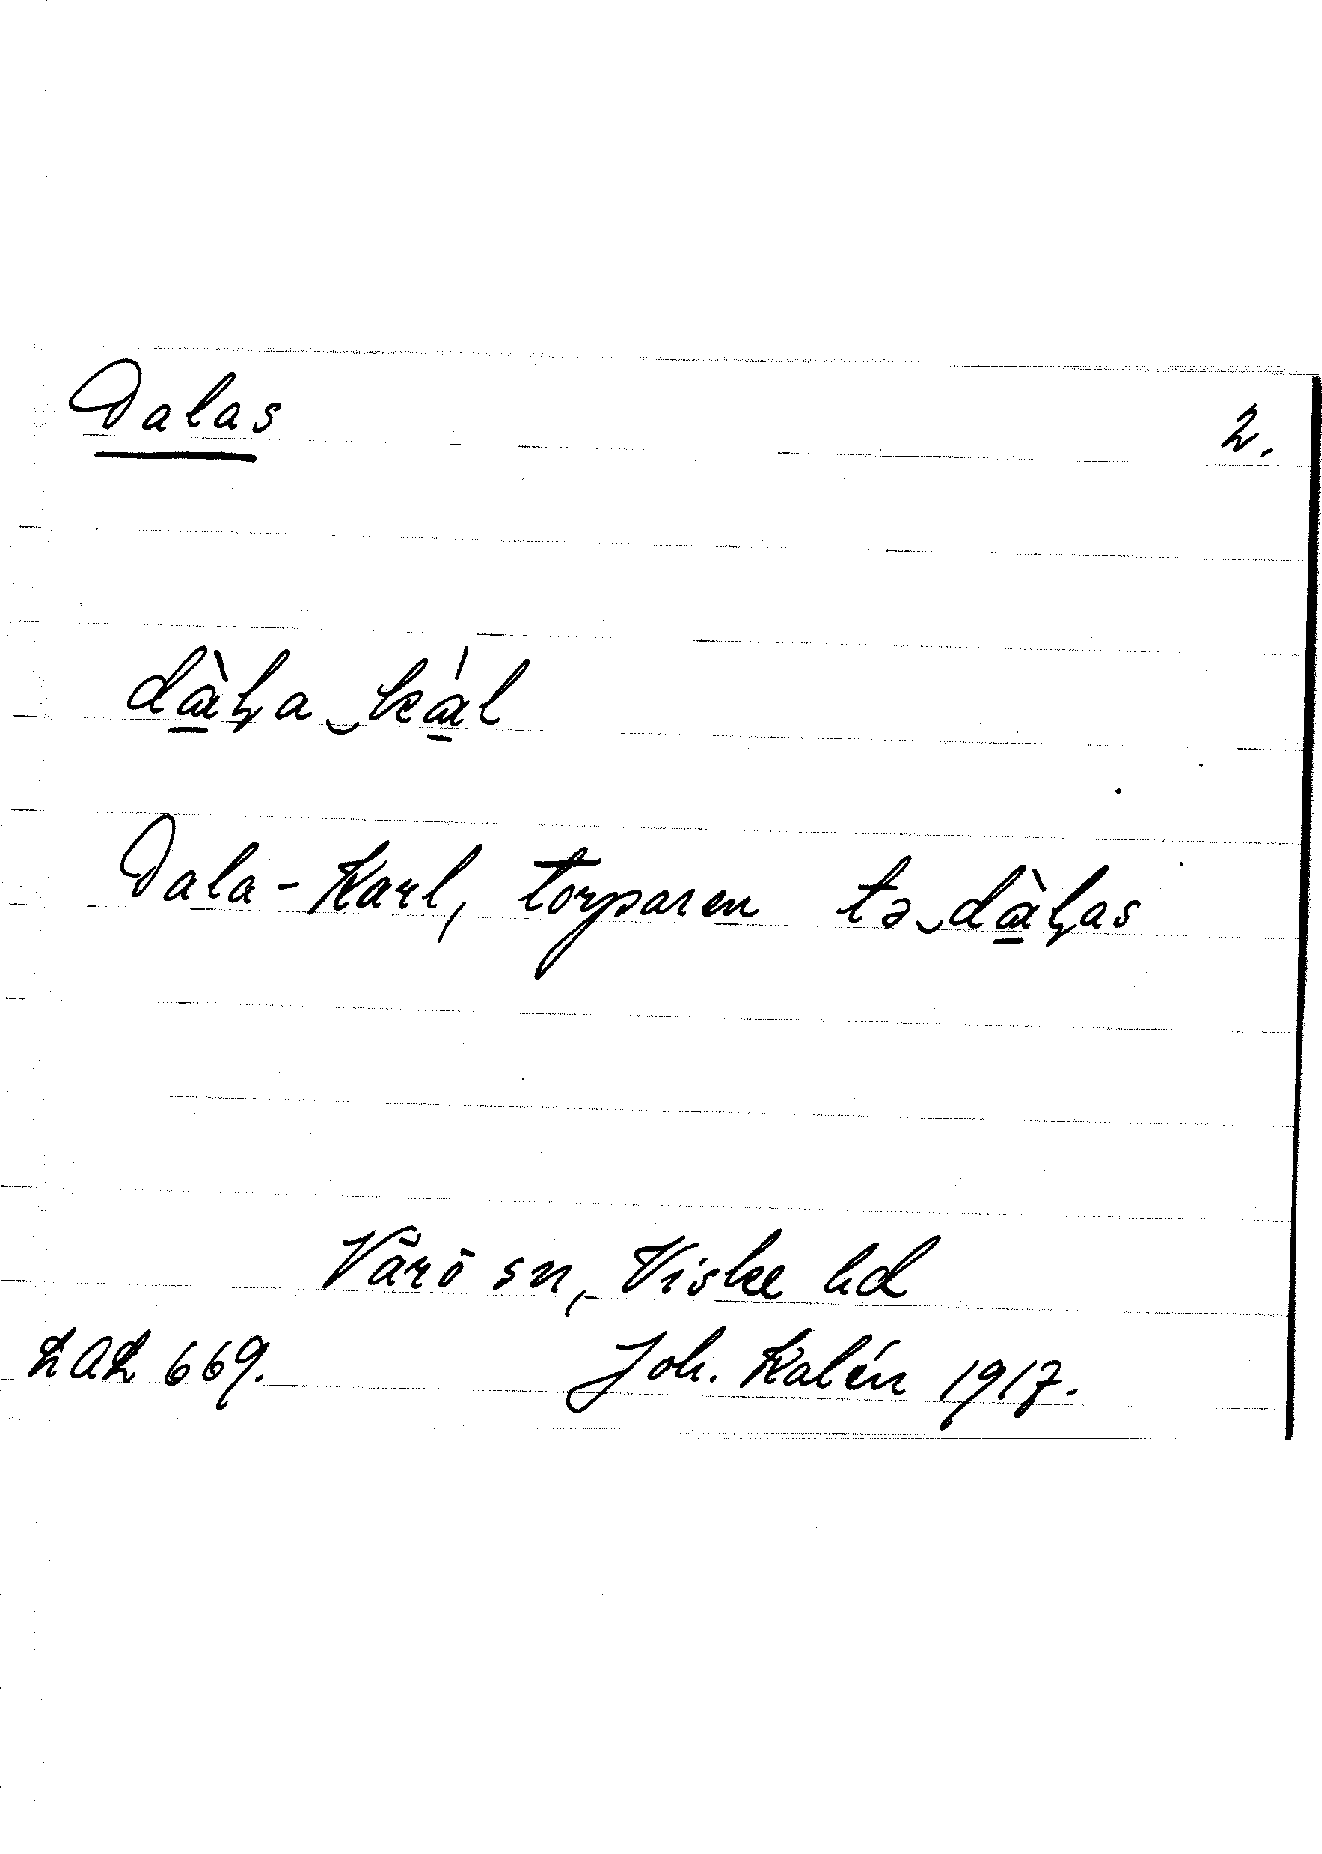 Dalas 2.
dàḷa‿kál
Dala-Karl, torparen tə‿dàḷas
Värö sn, Viske hd
LAL 669. Joh. Kalén 1917.